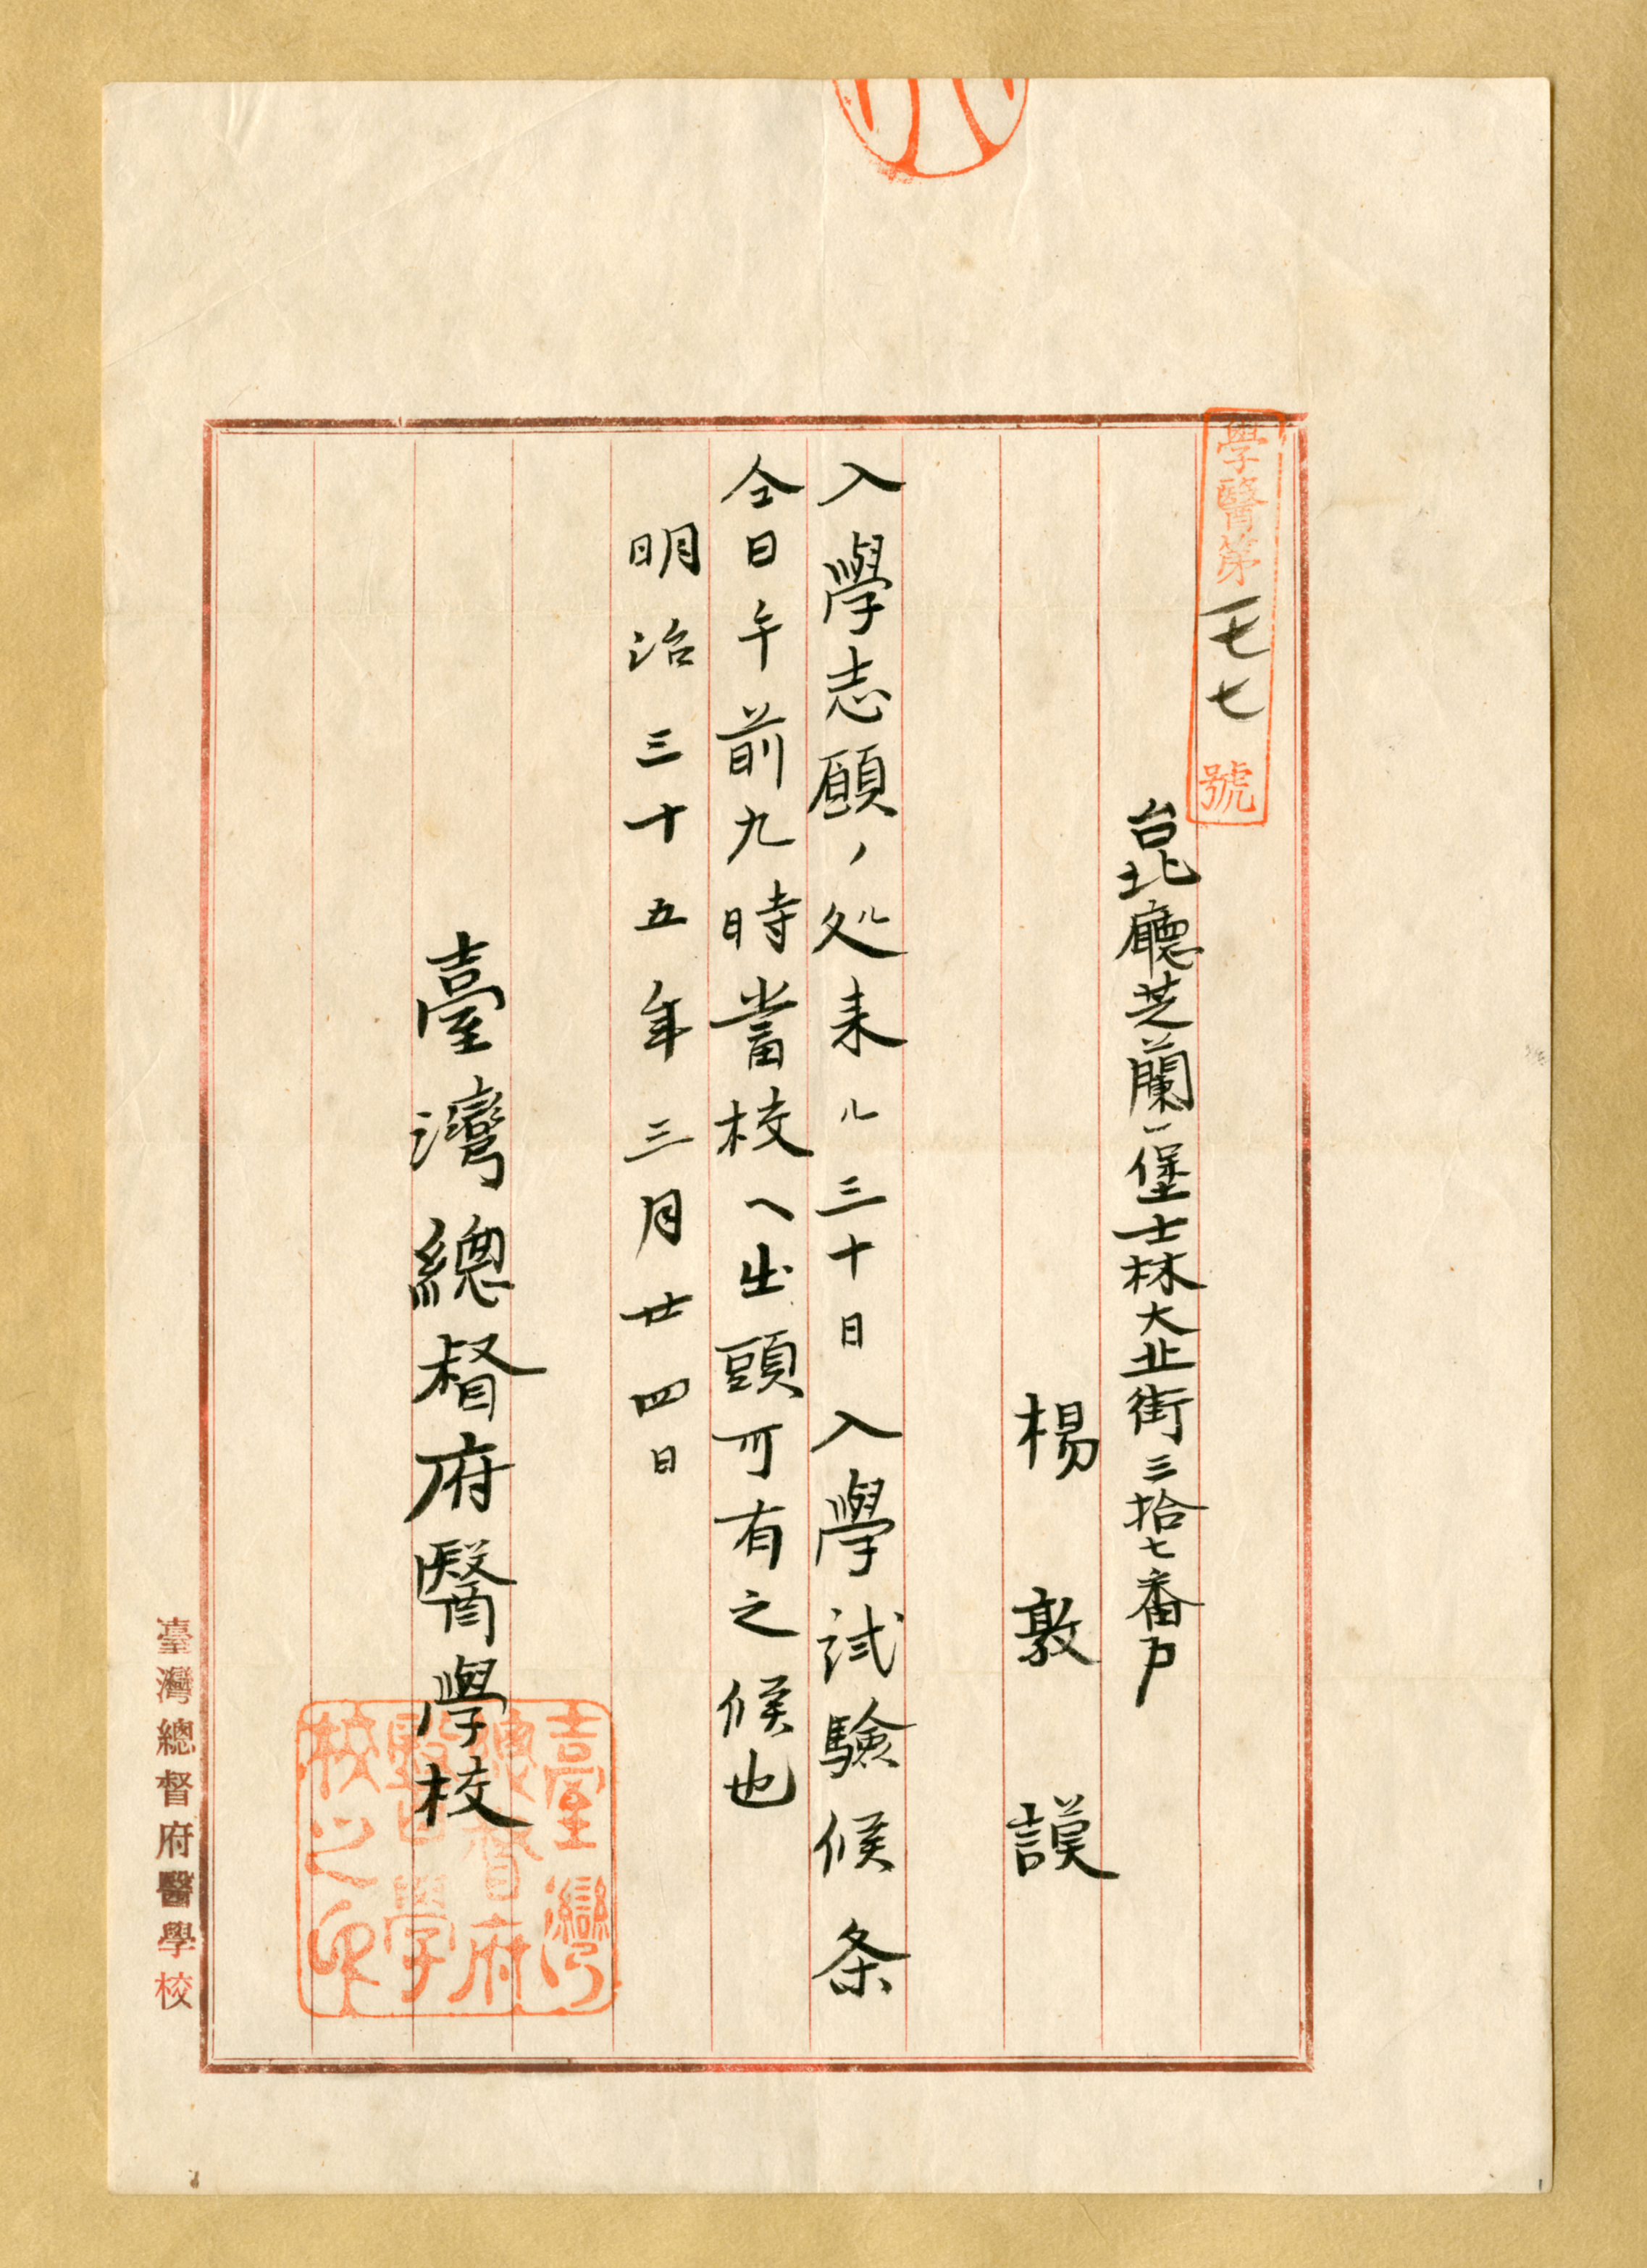 學醫第一七七號
台北廳芝蘭一堡士林大北街三拾七番戶
楊敦謨
入學志願ノ処来ル三十日入學試驗候条
仝日午前九時當校ヘ出頭可有之候也
明治三十五年三月廿四日
臺灣總督府醫學校
臺灣
總督府
醫學
校之印
臺灣總督府醫學校